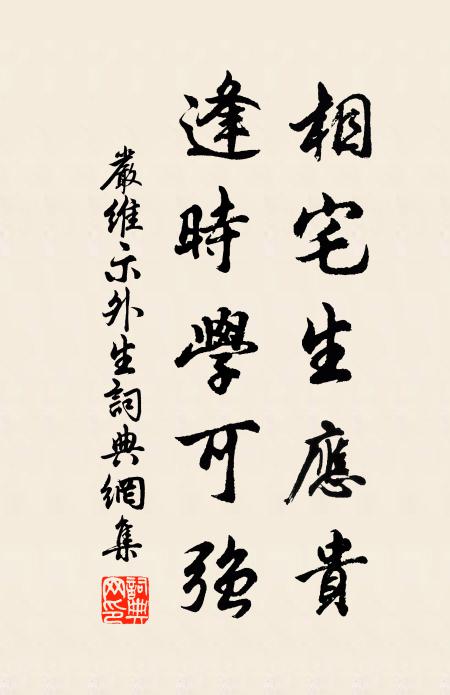 相宅生應貴
逢時學可強
嚴維示外生詞典網集
詞典网印